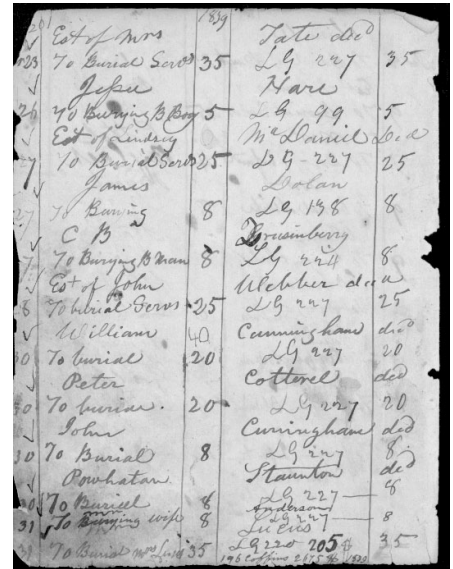 1839
Est of Mrs Tate decd
23 To Burial Servs 35 LG 227 35
Jesse Hare
26 To Burying B Boy 5 LG 99 5
Est of Lindsey McDaniel Decd
27 To Burial Servs 25 LG 227 25
James Dolan
27 To Burying 8 LG 138 8
C B Brusenberry
27 To Burying B Man 8 LG 224 8
Est of John Webber decd
8 To burial Servs 25 LG 227 25
William 40 Cunningham decd
30 To burial 20 LG 227 20
Peter Cotterel decd
30 To burial 20 LG 227 20
John Cunningham decd
30 To Burial 8 LG 227 8
Powhatan Staunton decd
30 To Buriell 8 LG 227 8
Anderson
31 To Burying wife 8 LG 227 8
31 To Burial Mrs 35 LG 220 205 35
196 Coffins